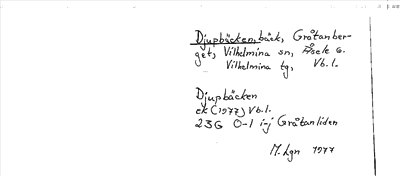 Djupbäcken, bäck, Gråtanber-
get, Vilhelmina sn, Åsele G.
Vilhelmina tg, Vb.l.
Djupbäcken
ek (1977) Vb.l.
23G 0-1 i-j Gråtanliden
M. Lgn 1977